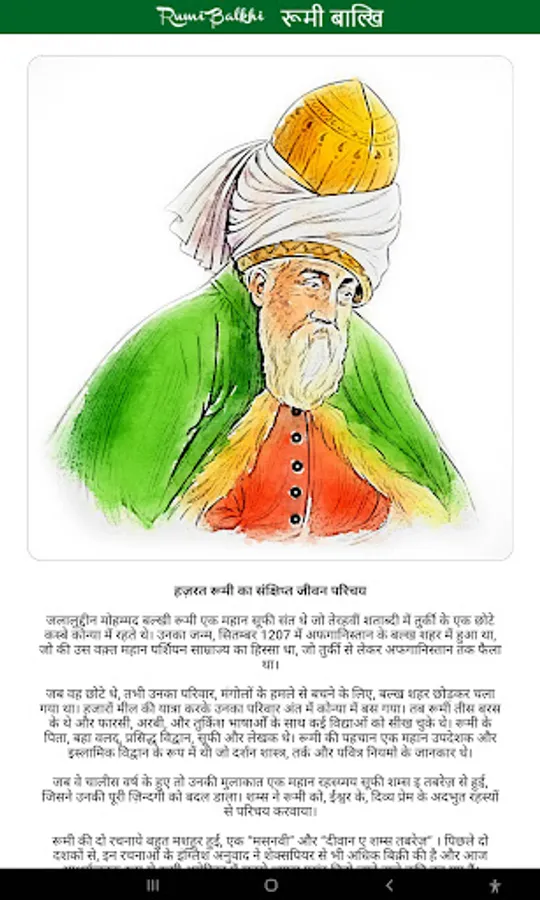 Rumi Balkhi रूमी बाल्खि
हज़रत रूमी का संक्षिप्त जीवन परिचय
जलालूद्दीन मोहम्मद बल्खी रूमी एक महान सूफी संत थे जो तेरहवीं शताब्दी में तुर्की के एक छोटे
कस्बे कोन्या में रहते थे। उनका जन्म, सितम्बर 1207 में अफगानिस्तान के बल्ख शहर में हुआ था,
जो की उस वक़्त महान पर्शियन साम्राज्य का हिस्सा था, जो तुर्की से लेकर अफगानिस्तान तक फैला
था।
जब वह छोटे थे, तभी उनका परिवार, मंगोलों के हमले से बचने के लिए, बल्ख शहर छोड़कर चला
गया था। हजारों मील की यात्रा करके उनका परिवार अंत में कोन्या में बस गया। तब रूमी तीस बरस
के थे और फारसी, अरबी, और तुर्किश भाषाओं के साथ कई विद्याओं को सीख चुके थे। रूमी के
पिता, बहा वलद, प्रसिद्ध विद्वान, सूफी और लेखक थे। रूमी की पहचान एक महान उपदेशक और
इस्लामिक विद्वान के रूप में थी जो दर्शन शास्त्र, तर्क और पवित्र नियमो के जानकार थे।
जब वे चालीस वर्ष के हुए तो उनकी मुलाकात एक महान रहस्मय सूफी शम्स इ तबरेज़ से हुई,
जिसने उनकी पूरी ज़िन्दगी को बदल डाला। शम्स ने रूमी को, ईश्वर के, दिव्य प्रेम के अदभुत रहस्यों
से परिचय करवाया।
रूमी की दो रचनाये बहुत मशहूर हुई, एक “मसनवी” और “दीवान ए शम्स तबरेज़” । पिछले दो
दशकों से, इन रचनाओं के इंग्लिश अनुवाद ने शेक्सपियर से भी अधिक बिक्री की है और आज